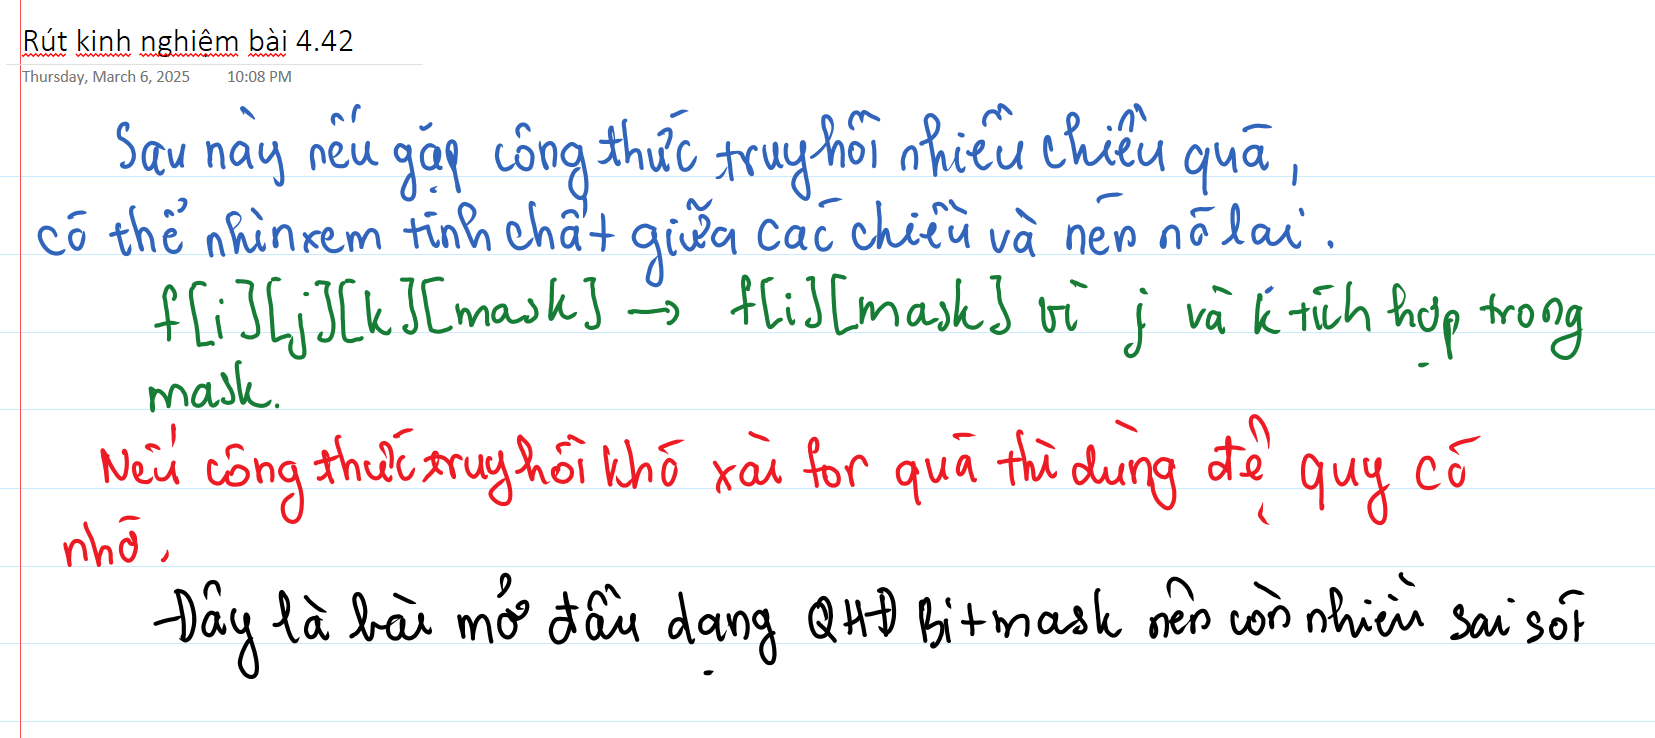 Rút kinh nghiệm bài 4.42
Thursday, March 6, 2025 10:08 PM
Sau này nếu gặp công thức truy hồi nhiều chiều quá,
có thể nhìn xem tính chất giữa các chiều và nén nó lại.
f[i][j][k][mask] → f[i][mask] vì j và k tích hợp trong
mask.
Nếu công thức truy hồi khó xài for quá thì dùng đệ quy có
nhớ.
Đây là bài mở đầu dạng QHĐ Bitmask nên còn nhiều sai sót